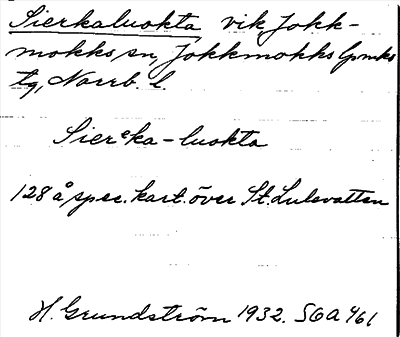 Sierkaluokta, vik, Jokk-
mokks sn, Jokkmokks lpmks
tg, Norrb. l.
Sierᵉka-luokta
128 å spec. kart. över St. Lulevatten
H. Grundström 1932. SOA 461